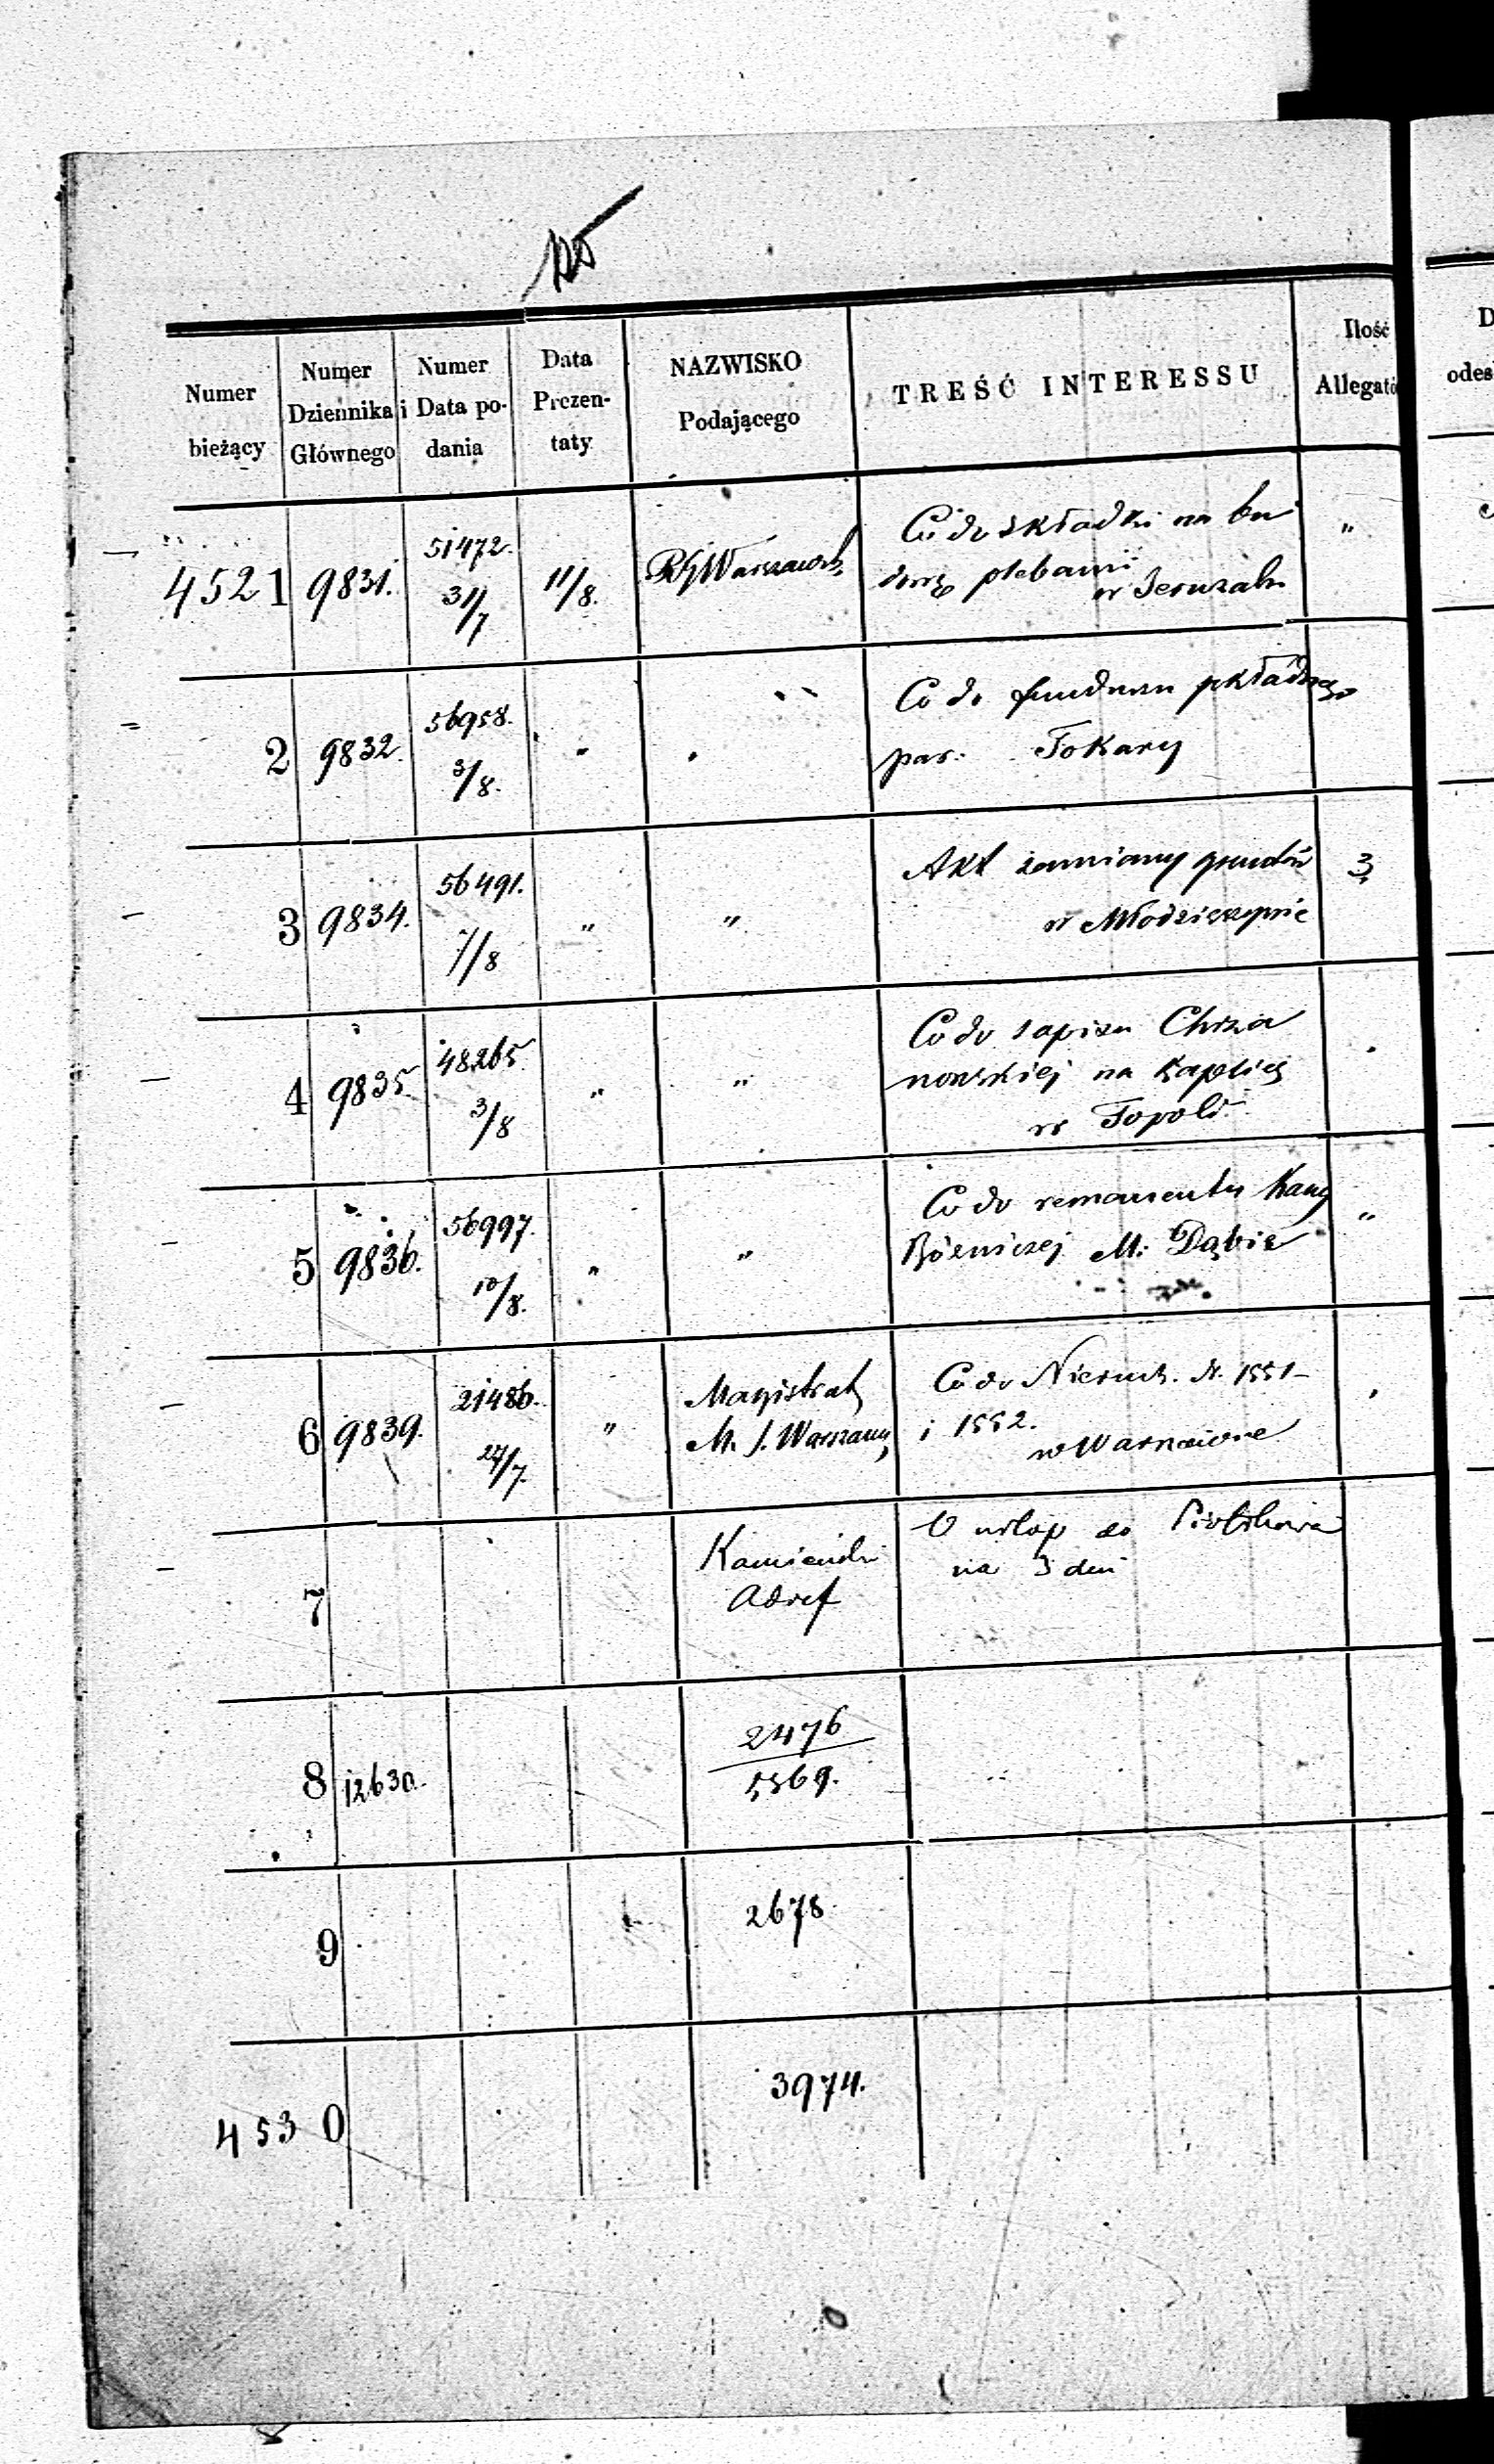 Numer bieżący
Numer Dziennika Głównego
Numer i Data podania
Data Prezentaty
NAZWISKO Podającego
TREŚĆ INTERESSU
Ilość
4521 9831. 51472. 31/7 11/8. RG Warszawsk. Co do składki na bu
dowę plebanii
w Jeruzalu
2 9832. 56958. 3/8. Co do funduszu pokładnego
par: Tokary
3 9834. 56491. 7/8 " " Akt zamiany gruntów 3
w Młodzieszynie
4 9835. 48265. 3/8 " " Co do zapisu Chrza
nowskiej na kaplicę
w Topoli
5 9836. 56997. 10/8. " " Co do remanentu Kassy "
Bóżniczej M: Dąbie
6 9839. 21486. 27/7. " Magistrat Co do Nieruch. N. 1551
M. S. Warszawy i 1552.
w Warszawie
7 O urlop do Piotrkowa
na 3 dni
8 12630. 2476
5369.
9 2678.
4530 3974.